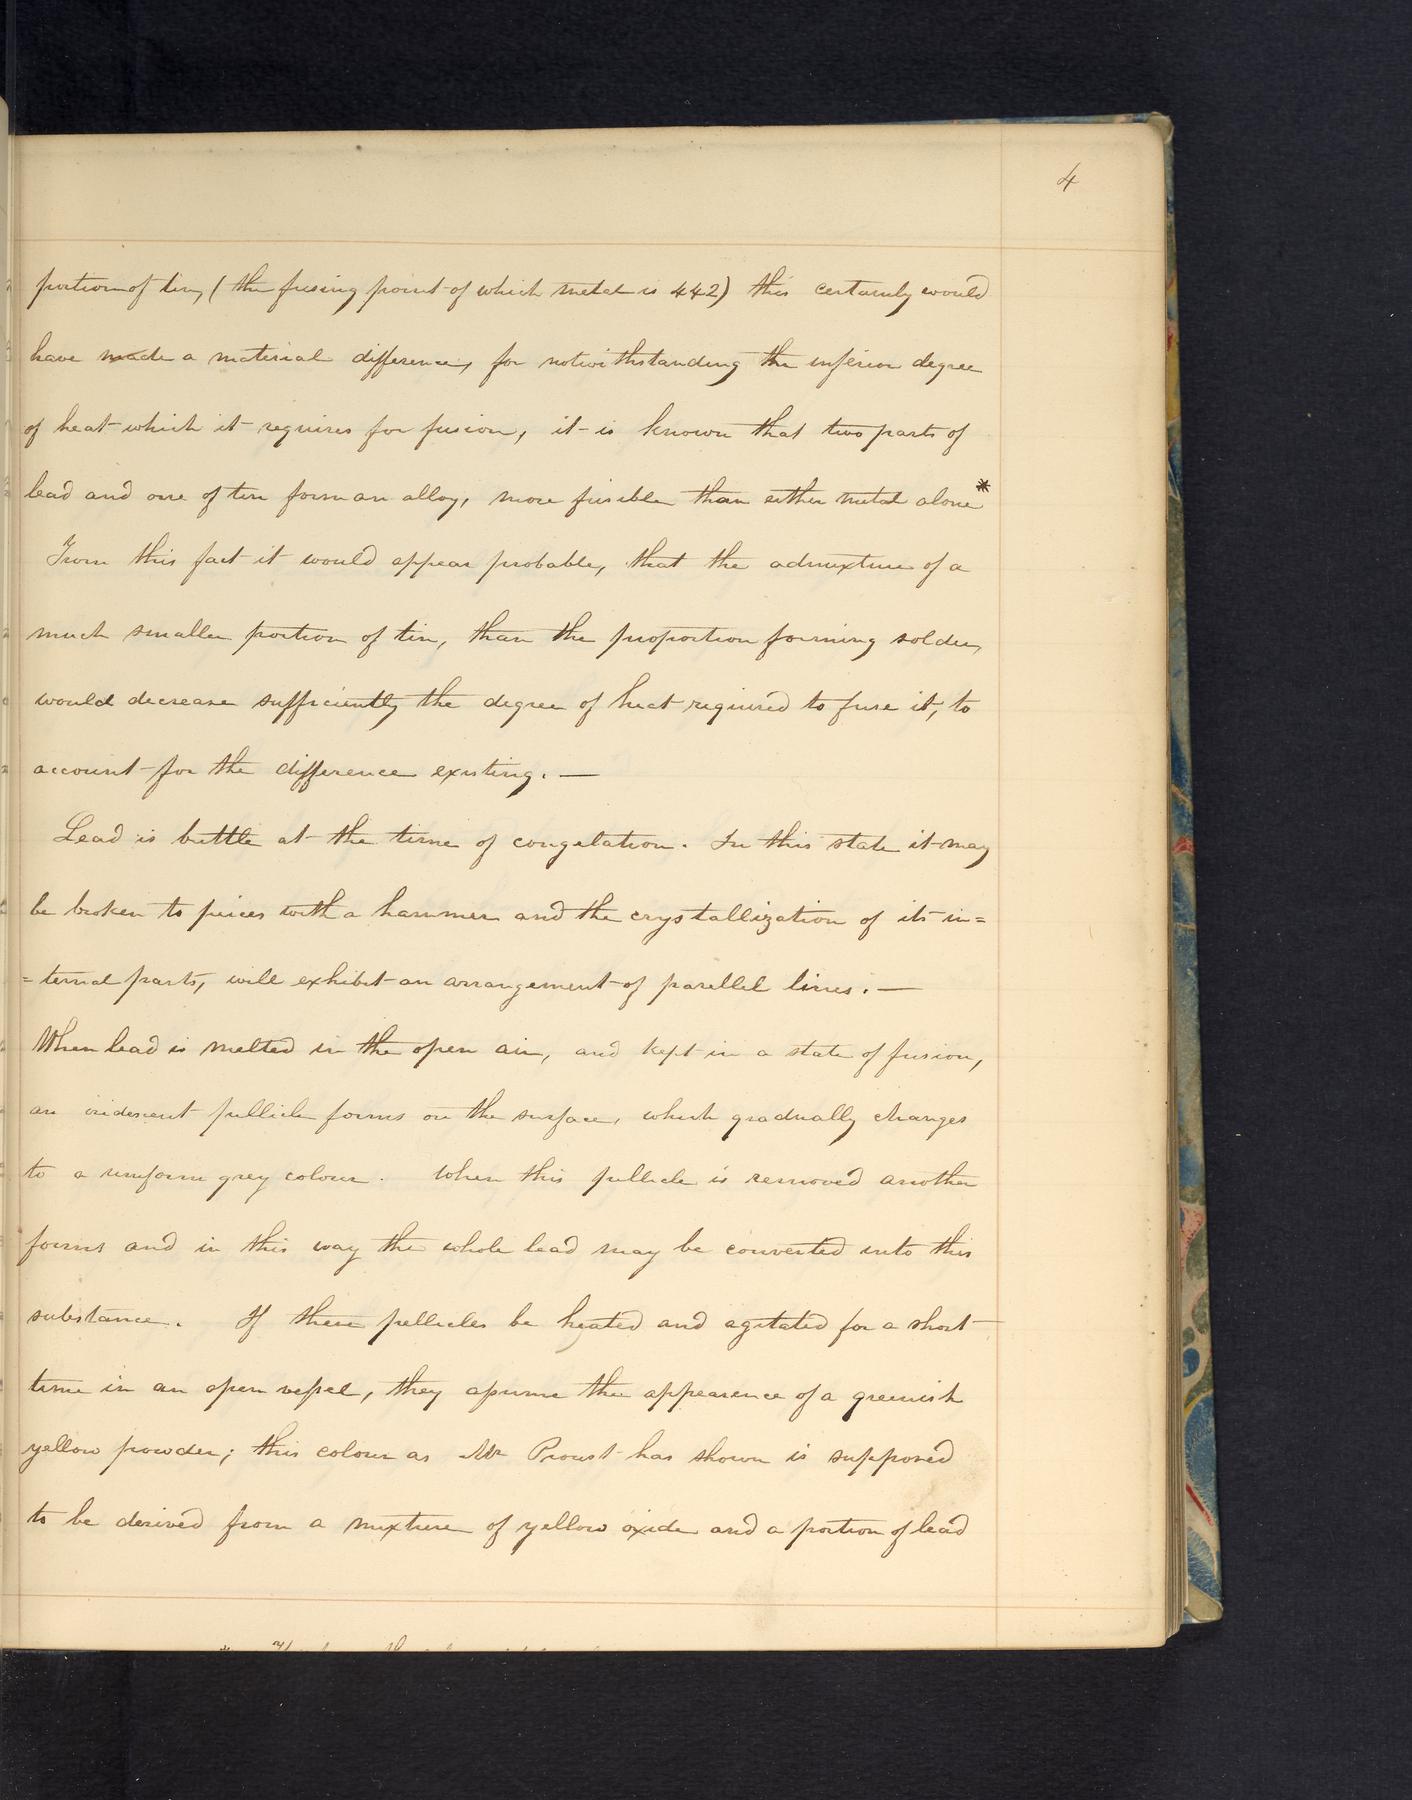 4
portion of tin, (the fusing point of which metal is 442) this certainly would
have made a material difference, for notwithstanding the inferior degree
of heat which it requires for fusion, it is known that two parts of
lead and one of tin form an alloy, more fusible than either metal alone*
From this fact it would appear probable, that the admixture of a
much smaller portion of tin, than the proportion forming solder,
would decrease sufficiently the degree of heat required to fuse it, to
account for the difference existing. —
Lead is brittle at the time of congelation. In this state it may
be broken to peices with a hammer and the crystallization of its in=
=ternal parts, will exhibit an arrangement of parellel lines. —
When lead is melted in the open air, and kept in a state of fusion,
an iridescent pellicle forms on the surface, which gradually changes
to a uniform grey colour. When this pellicle is removed another
forms and in this way the whole lead may be converted into this
substance. If these pellicles be heated and agitated for a short
time in an open vessel, they assume the appearence of a greenish
yellow powder; this colour as Mr Proust has shown is supposed
to be derived from a mixture of yellow oxide and a portion of lead